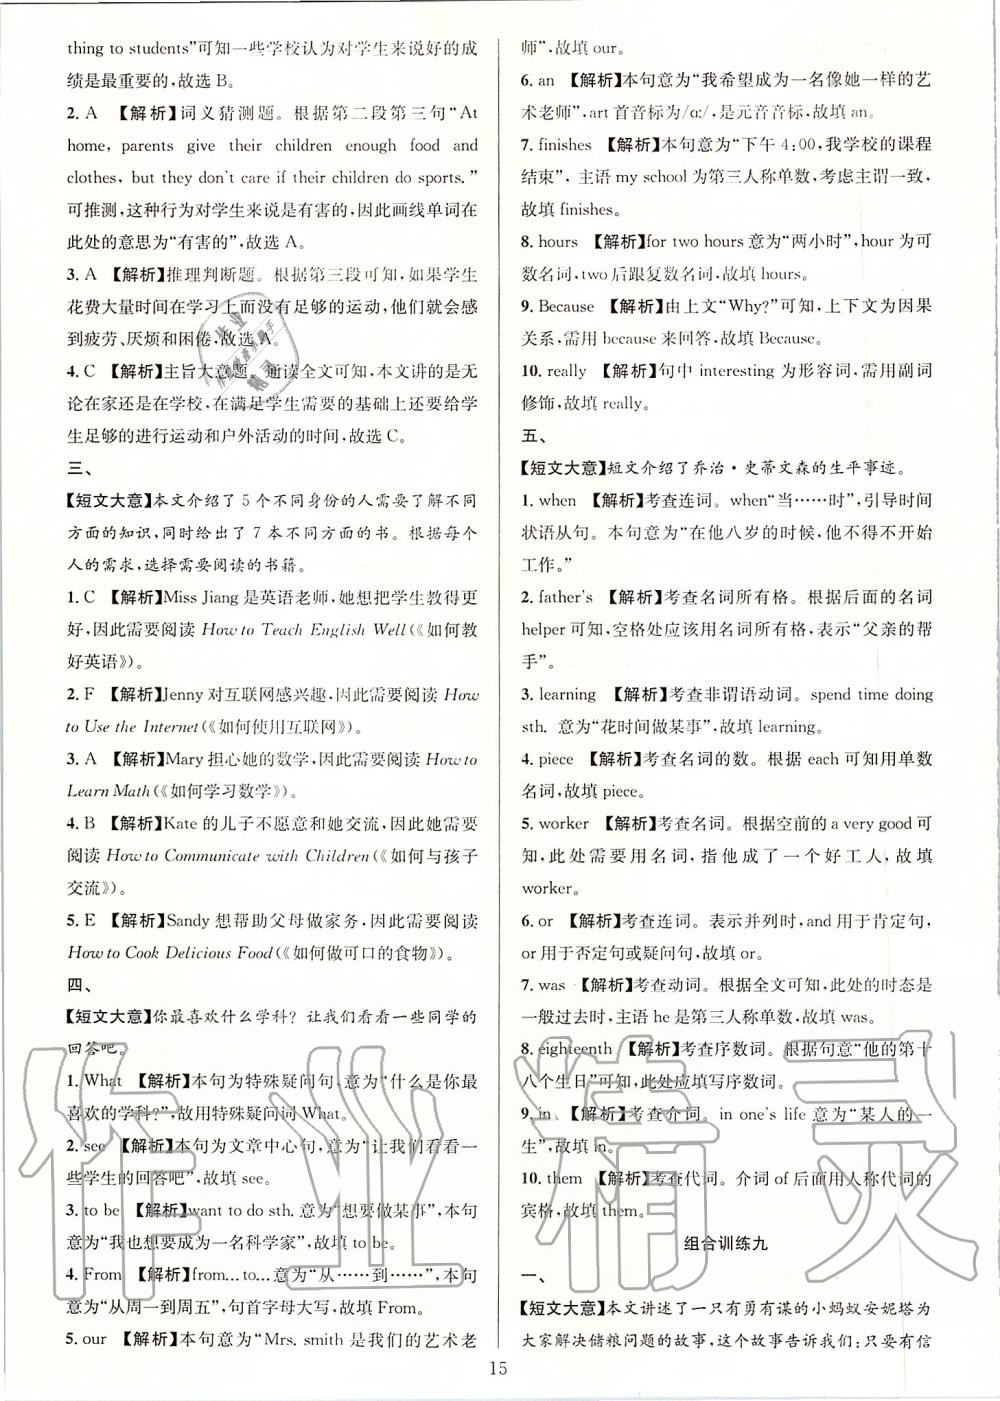 thing to students”可知一些学校认为对学生来说好的成
绩是最重要的,故选 B。
2. A 【解析】词义猜测题。根据第二段第三句“At
home, parents give their children enough food and
clothes, but they don't care if their children do sports.”
可推测,这种行为对学生来说是有害的,因此画线单词在
此处的意思为“有害的”,故选 A。
3. A 【解析】推理判断题。根据第三段可知,如果学生
花费大量时间在学习上而没有足够的运动,他们就会感
到疲劳、厌烦和困倦,故选 A。
4. C 【解析】主旨大意题。通读全文可知,本文讲的是无
论在家还是在学校,在满足学生需要的基础上还要给学
生足够的进行运动和户外活动的时间,故选 C。
三、
【短文大意】本文介绍了 5 个不同身份的人需要了解不同
方面的知识,同时给出了 7 本不同方面的书。根据每个
人的需求,选择需要阅读的书籍。
1. C 【解析】Miss Jiang 是英语老师,她想把学生教得更
好,因此需要阅读 How to Teach English Well(《如何教
好英语》)。
2. F 【解析】Jenny 对互联网感兴趣,因此需要阅读 How
to Use the Internet(《如何使用互联网》)。
3. A 【解析】Mary 担心她的数学,因此需要阅读 How to
Learn Math(《如何学习数学》)。
4. B 【解析】Kate 的儿子不愿意和她交流,因此她需要
阅读 How to Communicate with Children(《如何与孩子
交流》)。
5. E 【解析】Sandy 想帮助父母做家务,因此需要阅读
How to Cook Delicious Food(《如何做可口的食物》)。
四、
【短文大意】你最喜欢什么学科? 让我们看看一些同学的
回答吧。
1. What 【解析】本句为特殊疑问句,意为“什么是你最
喜欢的学科?”,故用特殊疑问词 What。
2. see 【解析】本句为文章中心句,意为“让我们看看一
些学生的回答吧”,故填 see。
3. to be 【解析】want to do sth. 意为“想要做某事”,本句
意为“我也想要成为一名科学家”,故填 to be。
4. From 【解析】from…to…意为“从……到……”,本句
意为“从周一到周五”,句首字母大写,故填 From。
5. our 【解析】本句意为“Mrs. smith 是我们的艺术老
师”,故填 our。
6. an 【解析】本句意为“我希望成为一名像她一样的艺
术老师”,art 首音标为/ɑː/,是元音音标,故填 an。
7. finishes 【解析】本句意为“下午 4:00,我学校的课程
结束”,主语 my school 为第三人称单数,考虑主谓一致,
故填 finishes。
8. hours 【解析】for two hours 意为“两小时”,hour 为可
数名词,two 后跟复数名词,故填 hours。
9. Because 【解析】由上文“Why?”可知,上下文为因果
关系,需用 because 来回答,故填 Because。
10. really 【解析】句中 interesting 为形容词,需用副词
修饰,故填 really。
五、
【短文大意】短文介绍了乔治·史蒂文森的生平事迹。
1. when 【解析】考查连词。when“当……时”,引导时间
状语从句。本句意为“在他八岁的时候,他不得不开始
工作。”
2. father's 【解析】考查名词所有格。根据后面的名词
helper 可知,空格处应该用名词所有格,表示“父亲的帮
手”。
3. learning 【解析】考查非谓语动词。spend time doing
sth. 意为“花时间做某事”,故填 learning。
4. piece 【解析】考查名词的数。根据 each 可知用单数
名词,故填 piece。
5. worker 【解析】考查名词。根据空前的 a very good 可
知,此处需要用名词,指他成了一个好工人,故填
worker。
6. or 【解析】考查连词。表示并列时,and 用于肯定句,
or 用于否定句或疑问句,故填 or。
7. was 【解析】考查动词。根据全文可知,此处的时态是
一般过去时,主语 he 是第三人称单数,故填 was。
8. eighteenth 【解析】考查序数词。根据句意“他的第十
八个生日”可知,此处应填写序数词。
9. in 【解析】考查介词。in one's life 意为“某人的一
生”,故填 in。
10. them 【解析】考查代词。介词 of 后面用人称代词的
宾格,故填 them。
组合训练九
一、
【短文大意】本文讲述了一只有勇有谋的小蚂蚁安妮塔为
大家解决储粮问题的故事,这个故事告诉我们:只要有信
15
作业精灵